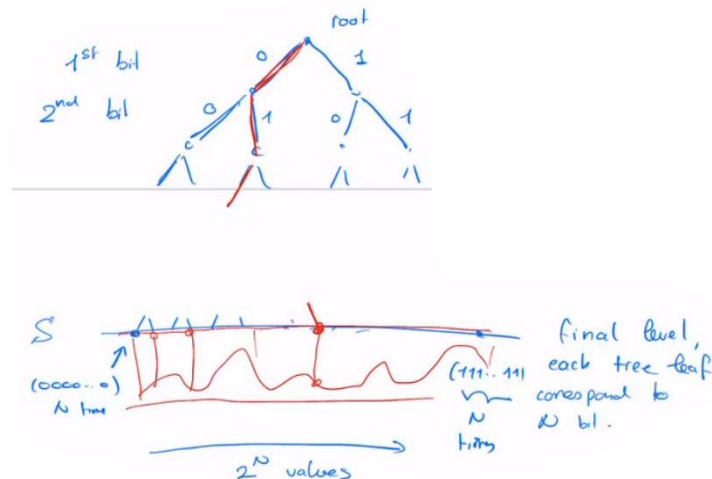 root
0 1
1st bit
2nd bit
0 1 0 1
S
(0000...0)
N time
(111..11)
N
times
final level,
each tree leaf
correspond to
N bit.
2^N values